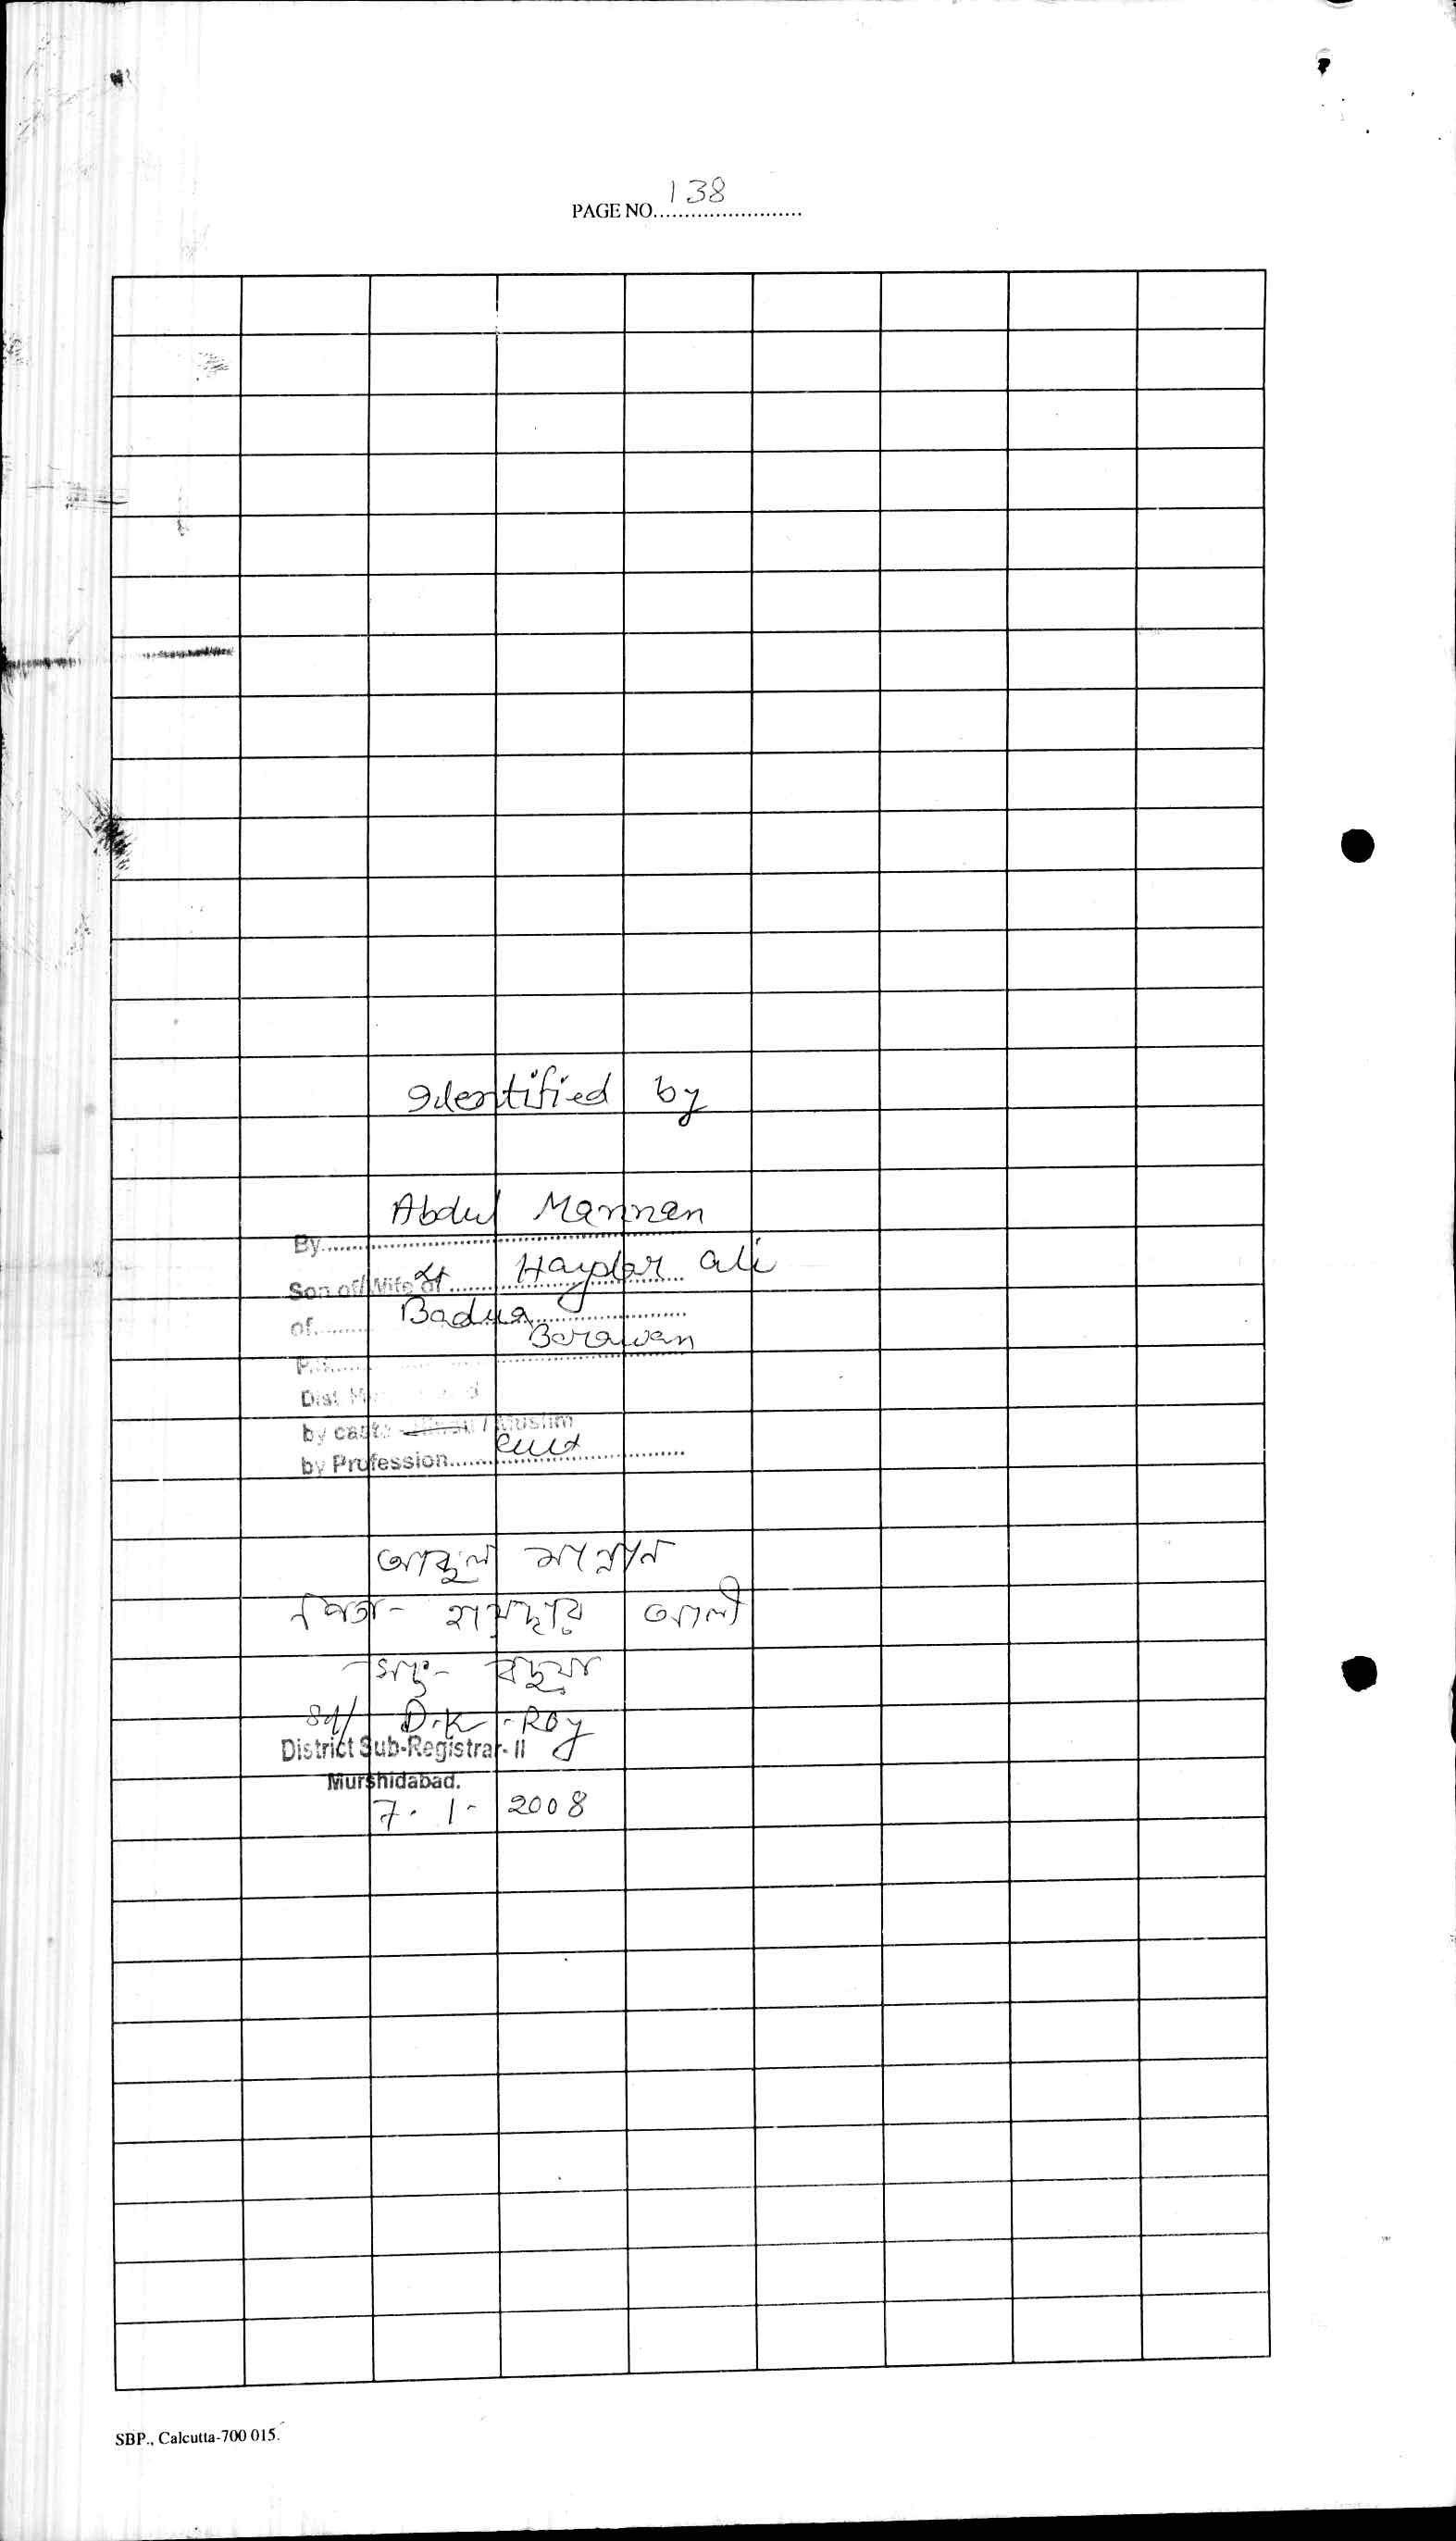 PAGE NO. 138
Identified by
By Abdul Mannan
Son of/Wife of Lt Haydar Ali
of Badua
P.S. Barawan
Dist. M
by caste Hindu / Muslim
by Profession Cult
আব্দুল মান্নান
পিতা- হায়দার আলী
সাং- বদুয়া
Sd/ D.K. Roy
District Sub-Registrar- II
Murshidabad.
7. 1- 2008
SBP., Calcutta-700 015.